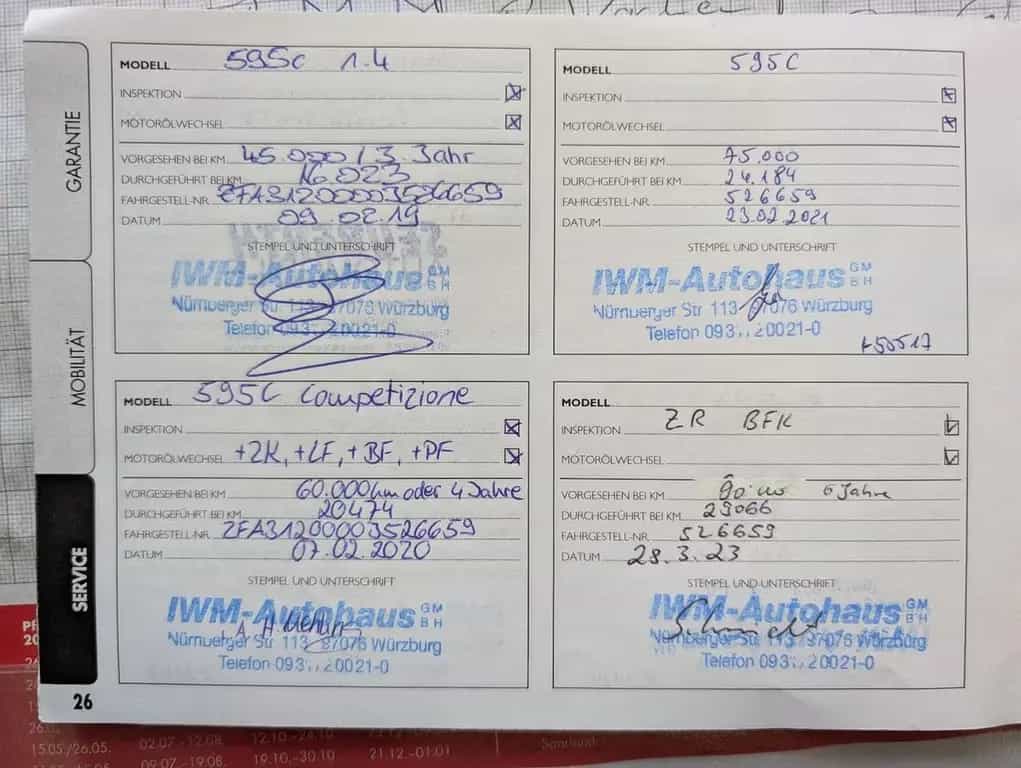 GARANTIE
MOBILITÄT
SERVICE
26
MODELL 595C 1.4
INSPEKTION
MOTORÖLWECHSEL
VORGESEHEN BEI KM 45.000 / 3. Jahr
DURCHGEFÜHRT BEI KM 16.023
FAHRGESTELL-NR. ZFA31200003526659
DATUM 09.02.19
STEMPEL UND UNTERSCHRIFT
IWM-Autohaus GMBH
Nürnberger Str. 113 97076 Würzburg
Telefon 093 20021-0
MODELL 595C
INSPEKTION
MOTORÖLWECHSEL
VORGESEHEN BEI KM 75.000
DURCHGEFÜHRT BEI KM 24.184
FAHRGESTELL-NR. 526659
DATUM 23.02.2021
STEMPEL UND UNTERSCHRIFT
IWM-Autohaus GMBH
Nürnberger Str 113 97076 Würzburg
Telefon 093 20021-0
MODELL 595C Competizione
INSPEKTION
MOTORÖLWECHSEL +ZK, +LF, +BF, +PF
VORGESEHEN BEI KM 60.000km oder 4 Jahre
DURCHGEFÜHRT BEI KM 20474
FAHRGESTELL-NR. ZFA31200003526659
DATUM 07.02.2020
STEMPEL UND UNTERSCHRIFT
IWM-Autohaus GMBH
Nürnberger Str 113 97076 Würzburg
Telefon 093 20021-0
MODELL
INSPEKTION ZR BFK
MOTORÖLWECHSEL
VORGESEHEN BEI KM 6 Jahre
DURCHGEFÜHRT BEI KM 29066
FAHRGESTELL-NR. 526659
DATUM 28.3.23
STEMPEL UND UNTERSCHRIFT
IWM-Autohaus GMBH
Nürnberger Str 113 97076 Würzburg
Telefon 093 20021-0
15.05./26.05. 02.07.-12.08. 12.10.-24.10
09.07.-19.08. 19.10.-30.10 21.12.-01.01